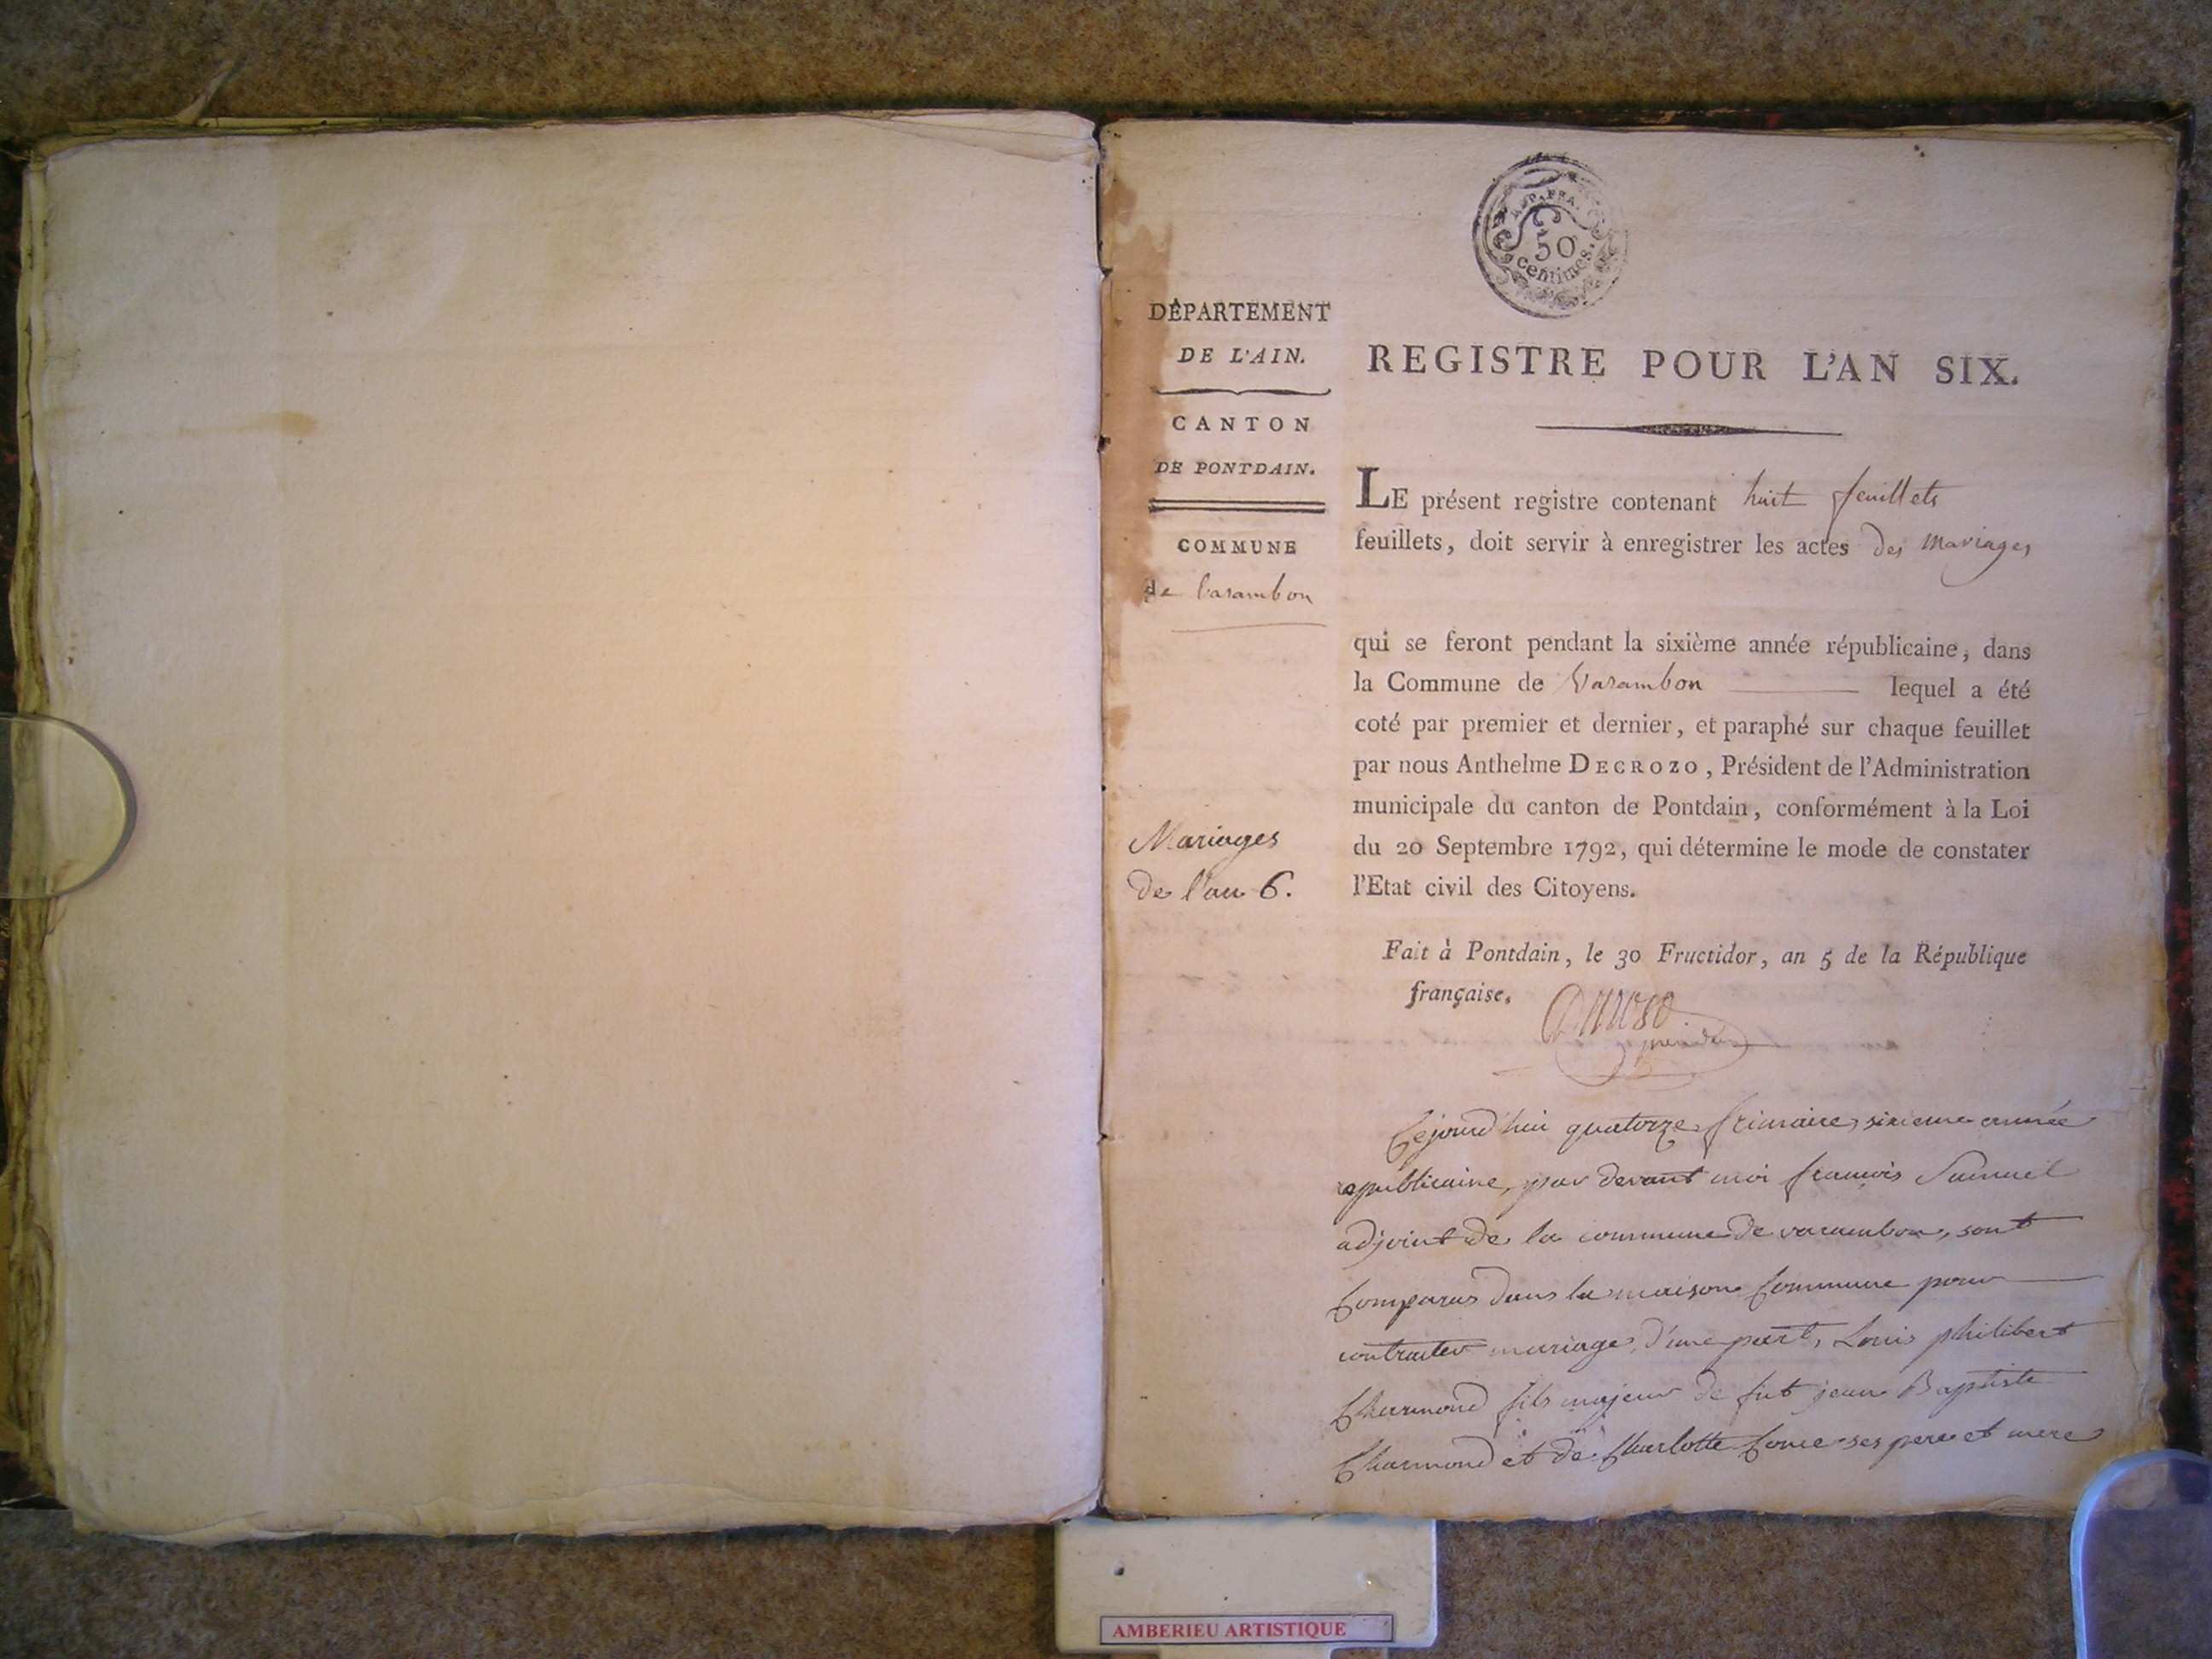 REP. FRA.
50
centimes.
DÉPARTEMENT
DE L'AIN.
CANTON
DE PONTDAIN.
COMMUNE
de Varambon
Mariages
De l'an 6.
REGISTRE POUR L'AN SIX.
LE présent registre contenant huit feuillets
feuillets, doit servir à enregistrer les actes des mariages
qui se feront pendant la sixième année républicaine, dans
la Commune de Varambon lequel a été
coté par premier et dernier, et paraphé sur chaque feuillet
par nous Anthelme DECROZO, Président de l'Administration
municipale du canton de Pontdain, conformément à la Loi
du 20 Septembre 1792, qui détermine le mode de constater
l'Etat civil des Citoyens.
Fait à Pontdain, le 30 Fructidor, an 5 de la République
française.
Cejourd'hui quatorze frimaire, sixieme année
republicaine, par devant moi francois Samuel
adjoint de la commune de varambon, sont
Comparus dans la maison Commune pour
contracter mariage, d'une part, Louis philibert
Charmond fils majeur de fut jean Baptiste
Charmond et de Charlotte ses pere et mere
AMBERIEU ARTISTIQUE